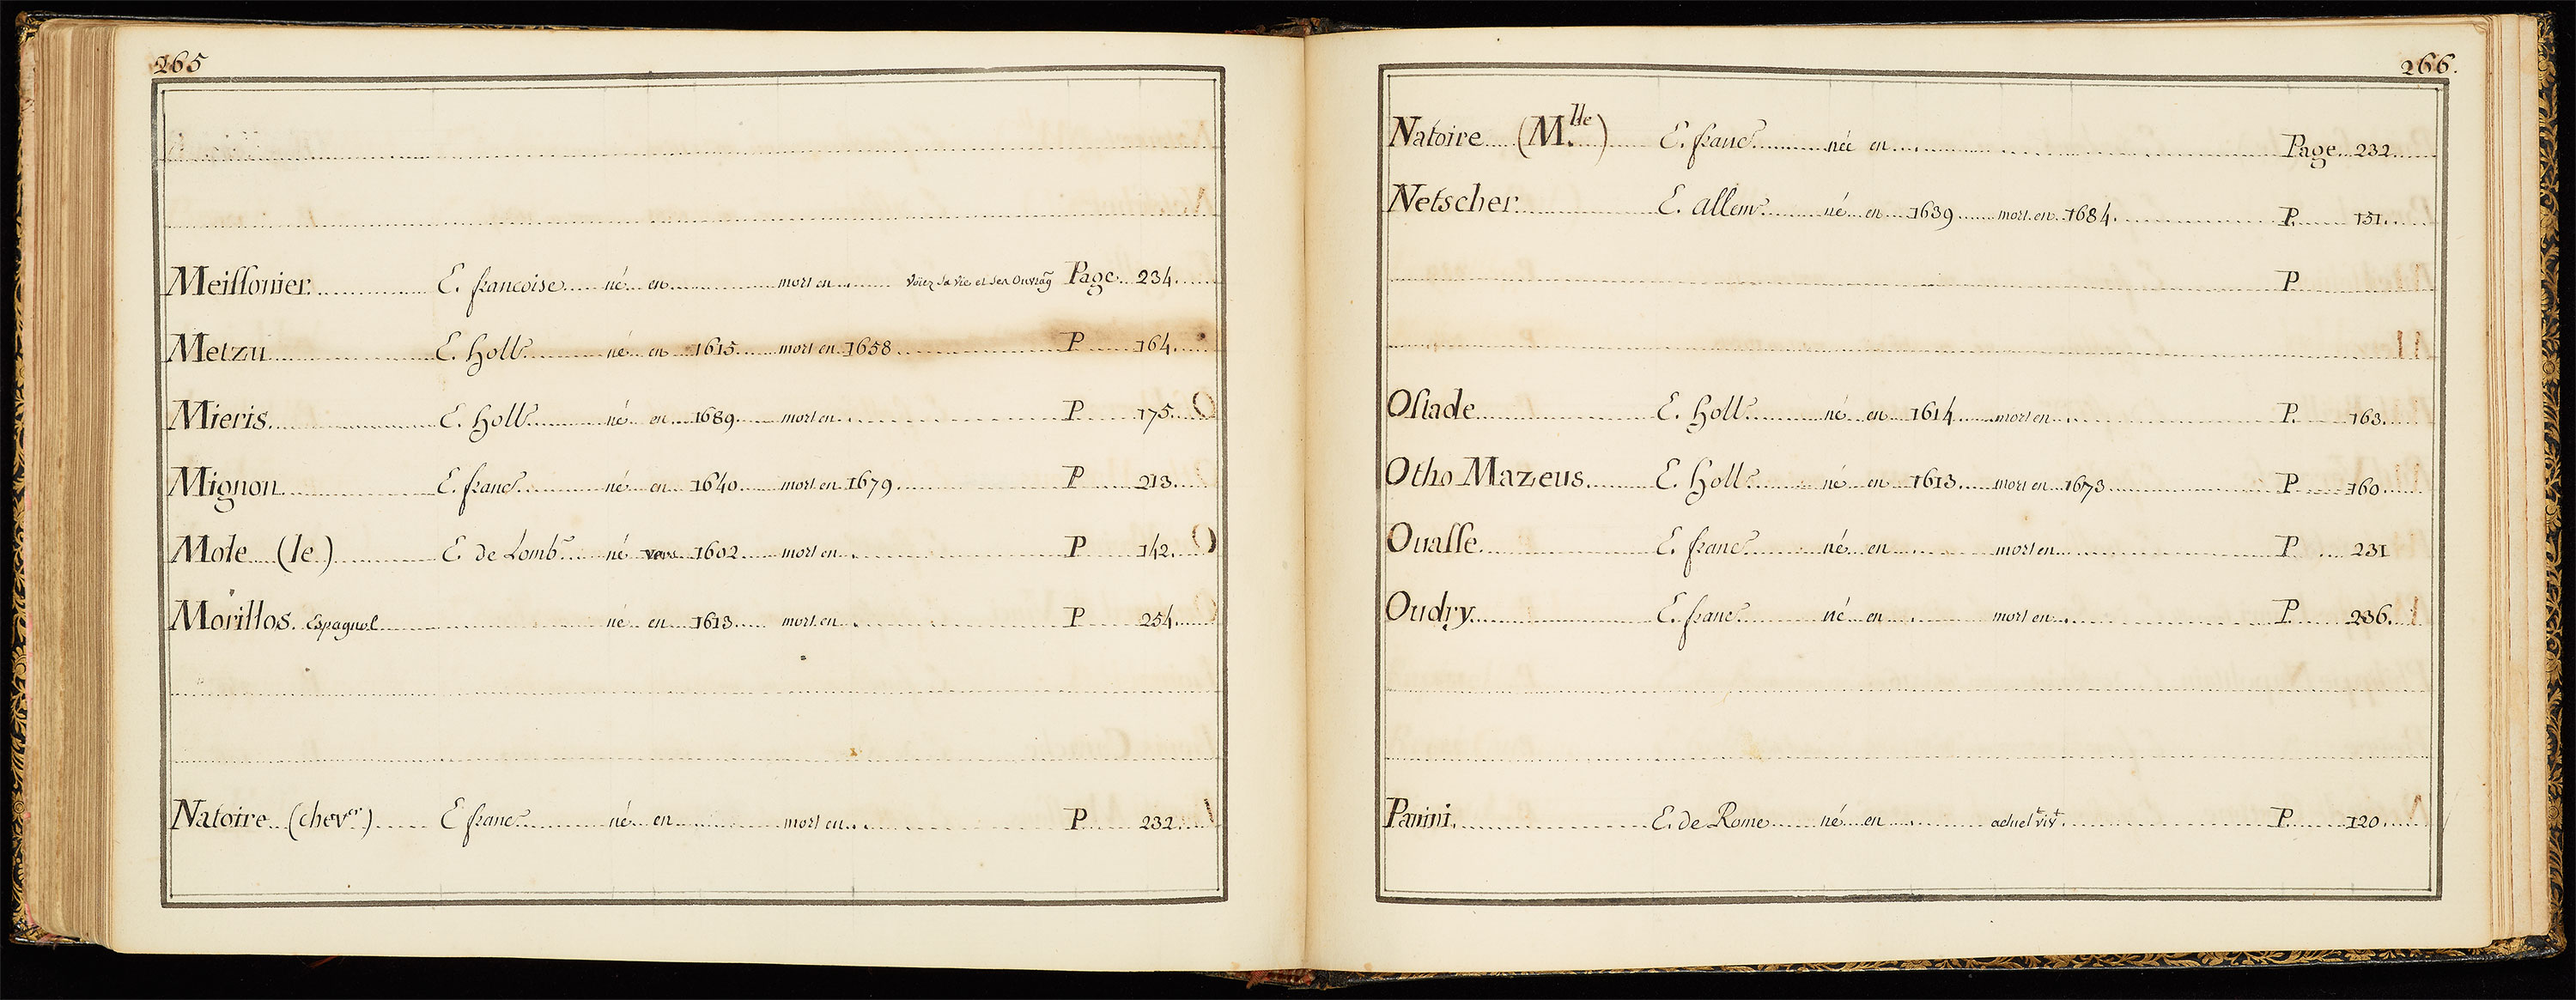 265
Meissonier E. francoise né en mort en Voiez sa vie et ses Ouvrag Page 234.
Metzu E. Holl.e né en 1615 mort en 1658 P 164.
Mieris. E. Holl.e né en 1689 mort en P 175.
Mignon E. franc.e né en 1640 mort en 1679 P 213.
Mole (le) E. de Lomb.e né vers 1602 mort en P 142.
Morillos. Espagnol né en 1613 mort en P 254.
Natoire (chev.er) E franc.e né en mort en P 232.
266.
Natoire (M.lle) E. franc.e née en Page 232.
Netscher E. allem.e né en 1639 mort en 1684. P. 151.
P
Ostade E. Holl.e né en 1614 mort en P. 163.
Otho Mazeus. E. Holl.e né en 1613. mort en 1673 P 160.
Ouasse E. franc.e né en mort en P 231
Oudry E. franc.e né en mort en P. 236.
Panini. E. de Rome né en actuel.t viv.t P. 120.